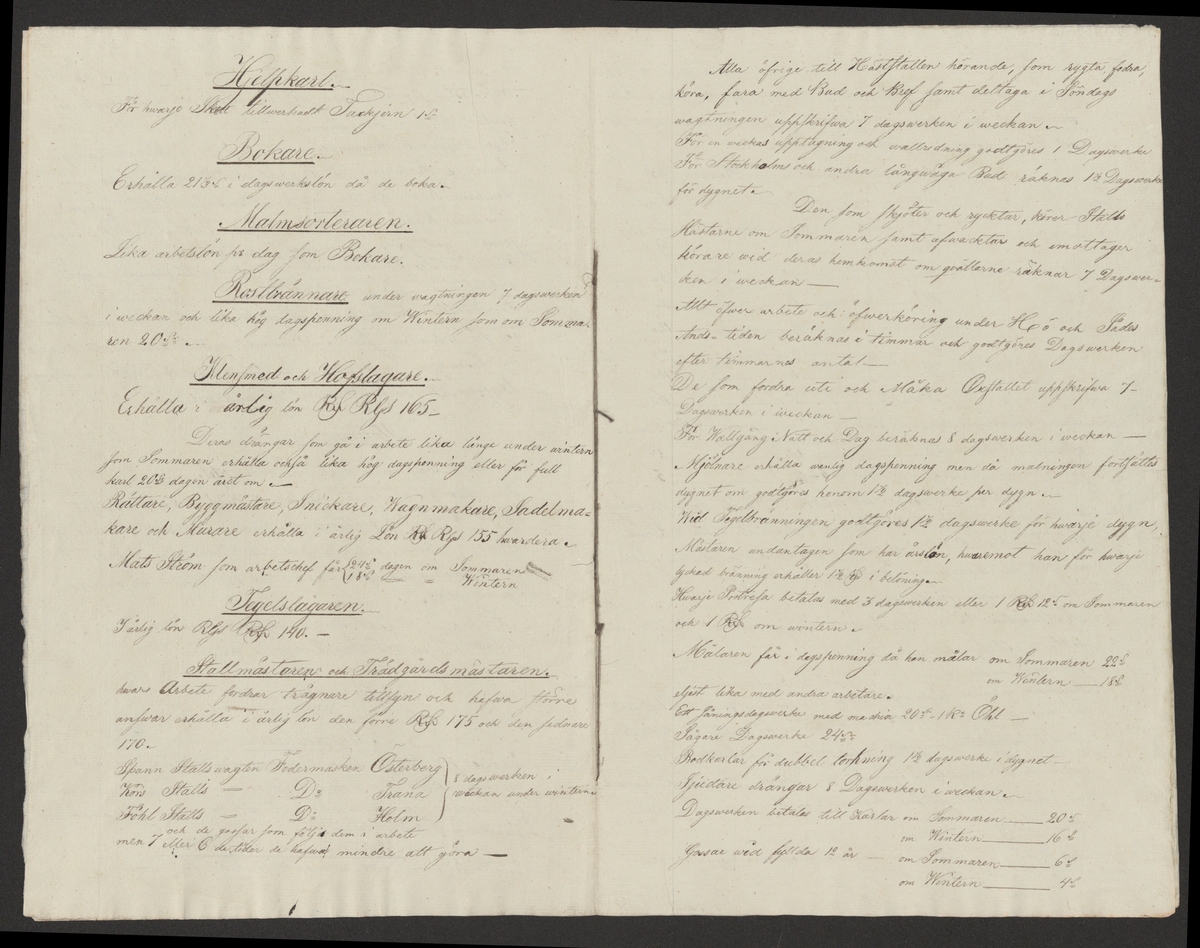 Hjelpkarl.
För hwarje Skott tillwerkadt Tackjern 1 s
Bokare.
Erhålla 21⅓ s i dagswerkslön då de boka.
Malmsorteraren.
Lika arbetslön pr dag som Bokare.
Rostbrännare under wagtningen 7 dagswerken
i weckan och lika hög dagspenning om Wintern som om Somma-
ren 20 s.
Klensmed och Hofslagare.
Erhålla i årlig lön Rgs 165
Deras drängar som gå i arbete lika länge under wintern
som Sommaren erhålla också lika hög dagspenning eller för full
karl 20 s dagen året om.
Rättare, Byggmästare, Snickare, Wagnmakare, Sadelma-
kare och Murare erhålla i årlig Lön Rgs 155 hwardera.
Mats Ström som arbetschef får 24 s dagen om Sommaren
18 s = = Wintern
Tegelslagaren.
I årlig lön Rgs 140.
Stallmästaren och Trädgårdsmästaren.
hwars Arbete fordrar trägnare tillsyn och hafwa större
answar erhålla i årlig lön den förre 175 och den sednare
170.
Spann Stalls wagten Födermasken Österberg
Körs Stalls — Do Trana
Föhl Stalls — Do Holm
8 dagswerken i
weckan under wintern
och de gossar som följa dem i arbete
men 7 eller 6 de tider de hafwa mindre att göra —
Alla öfrige till Häststallen hörande, som rygta, fodra,
köra, fara med Bud och Bref samt deltaga i Söndags
wagtningen uppskrifwa 7 dagswerken i weckan.
För en weckas upptagning och wallridning godtgöres 1 Dagswerke
För Stockholms och andra långwäga Bud räknas 1½ Dagswerke
för dygnet.
Den som skjöter och rycktar, körer Stalls
Hästarne om Sommaren samt afwacktar och emottager
körare wid deras hemkomst om qvällarne räknar 7 Dagswer-
ken i weckan —
Allt öfwer arbete och öfwerköring under Hö och Sädes
Ands-tiden beräknas i timmar och godtgöres Dagswerken
efter timmarnes antal —
De som fordra uti och Måka Oxstallet uppskrifwa 7
Dagswerken i weckan —
För Wallgång Natt och Dag beräknas 8 dagswerken i weckan —
Mjölnare erhålla wanlig dagspenning men då malningen fortsättes
dygnet om godtgöres honom 1½ dagswerke per dygn.
Wid Tegelbränningen godtgöres 1½ dagswerke för hwarje dygn,
Mästaren undantagen som har årslön, hwaremot han för hwarje
lyckad bränning erhåller i belöning.
Hwarje Postresa betalas med 3 dagswerken eller 1 12 s om Sommaren
och 1 om wintern.
Målaren får i dagspenning då han målar om Sommaren 22 s
om Wintern — 18 s
eljest lika med andra arbetare.
Ett såningsdagswerke med maskin 20 s - 1 K:a Öhl —
Sågare Dagswerke 24 s
Bodkarlar för dubbel torkning 1½ dagswerke i dygnet —
Tjudare drängar 8 Dagswerken i weckan.
Dagswerken betalas till Karlar om Sommaren — 20 s
om Wintern — 16 s
Gossar wid fyllda 12 år — om Sommaren — 6 s
om Wintern — 4 s